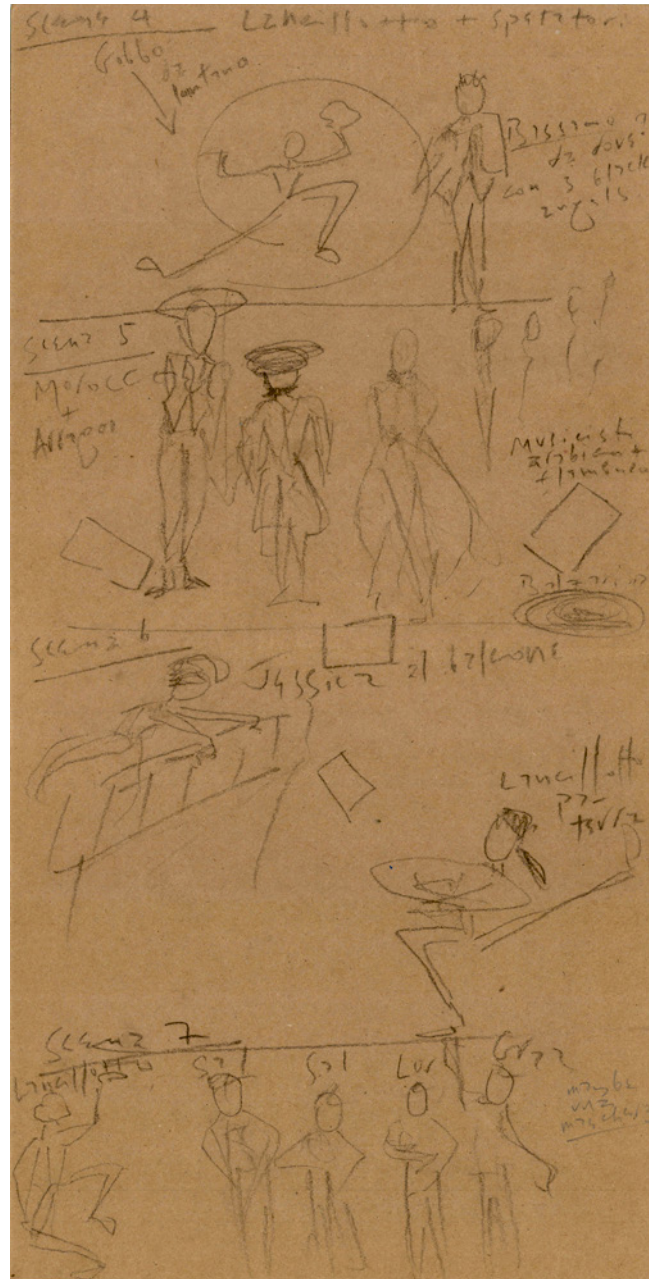 Scena 4 Lancillotto + spettatori
Gobbo
da
lontano
Bassanio?
da dove?
con 3 black
angels
Scena 5
Morocco
+
Arragon
Musicisti
arabian +
flamenco
Scena 6
Jessica al balcone
Lancillotto
Scena 7
Lancillotto Sal Sal Lor Graz
maybe
una
maschera